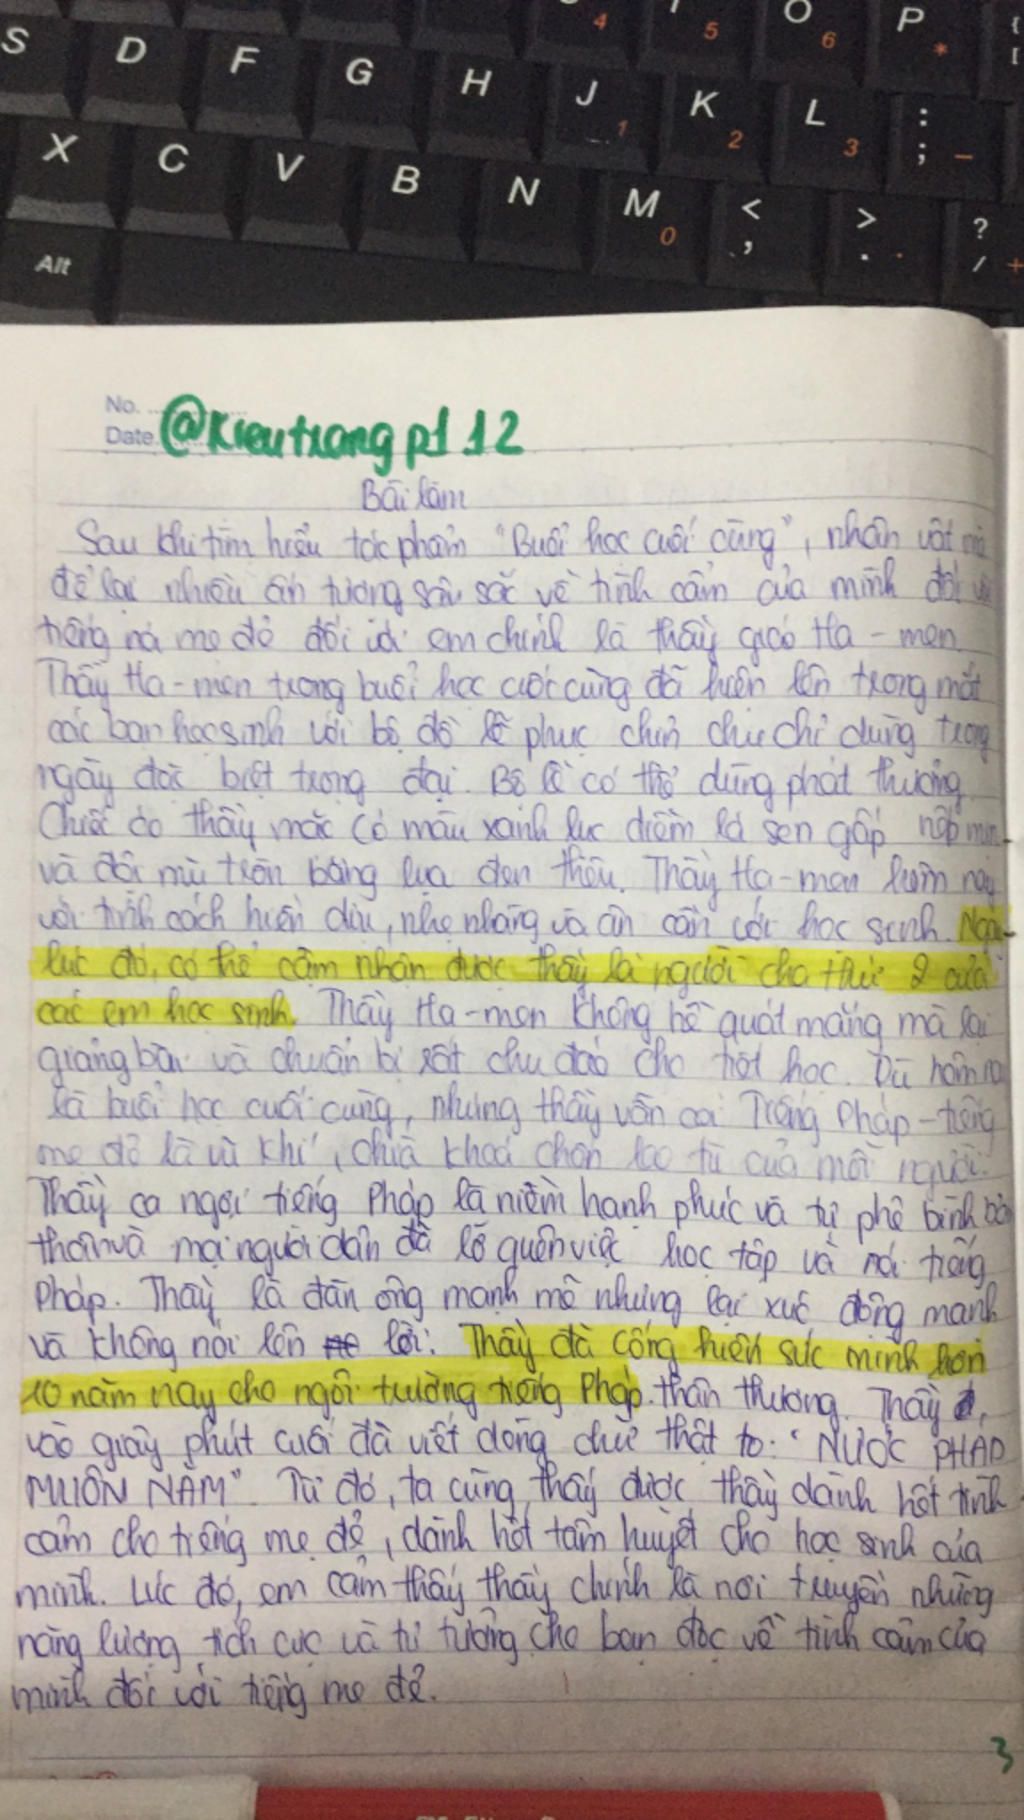 S D F G H J 1 K 2 L 3 : ; -
4 5 O 6 P * { [
X C V B N M 0 < , > . . ? / +
Alt
No.
Date @Kieutrang p1 12
Bài làm
Sau khi tìm hiểu tác phẩm "Buổi học cuối cùng", nhân vật mà
để lại nhiều ấn tượng sâu sắc về tình cảm của mình đối với
tiếng mẹ đẻ đối với em chính là thầy giáo Ha-men.
Thầy Ha-men trong buổi học cuối cùng đã hiện lên trong mắt
các bạn học sinh với bộ đồ lễ phục chỉn chu chỉ dùng trong
ngày đặc biệt trọng đại. Bộ lễ có thể dùng phát thưởng.
Chiếc áo thầy mặc có màu xanh lục diềm lá sen gấp nếp mịn
và đội mũ tròn bằng lụa đen thêu. Thầy Ha-men hôm nay
với tính cách hiền dịu, nhẹ nhàng và ân cần với học sinh. Ngay
lúc đó, có thể cảm nhận được thầy là người cha thứ 2 của
các em học sinh. Thầy Ha-men không hề quát mắng mà lại
giảng bài và chuẩn bị rất chu đáo cho tiết học. Dù hôm nay
là buổi học cuối cùng, nhưng thầy vẫn coi Tiếng Pháp-tiếng
mẹ đẻ là vũ khí, chìa khoá chốn lao tù của mỗi người.
Thầy ca ngợi tiếng Pháp là niềm hạnh phúc và tự phê bình bản
thân và mọi người dân đã lỡ quên việc học tập và nói tiếng
Pháp. Thầy là đàn ông mạnh mẽ nhưng lại xúc động mạnh
và không nói lên lời. Thầy đã cống hiến sức mình hơn
40 năm nay cho ngôi trường tiếng Pháp thân thương. Thầy,
vào giây phút cuối đã viết dòng chữ thật to: "NƯỚC PHÁP
MUÔN NĂM". Từ đó, ta cũng thấy được thầy dành hết tình
cảm cho tiếng mẹ đẻ, dành hết tâm huyết cho học sinh của
mình. Lúc đó, em cảm thấy thầy chính là nơi truyền những
năng lượng tích cực và tư tưởng cho bạn đọc về tình cảm của
mình đối với tiếng mẹ đẻ.
3